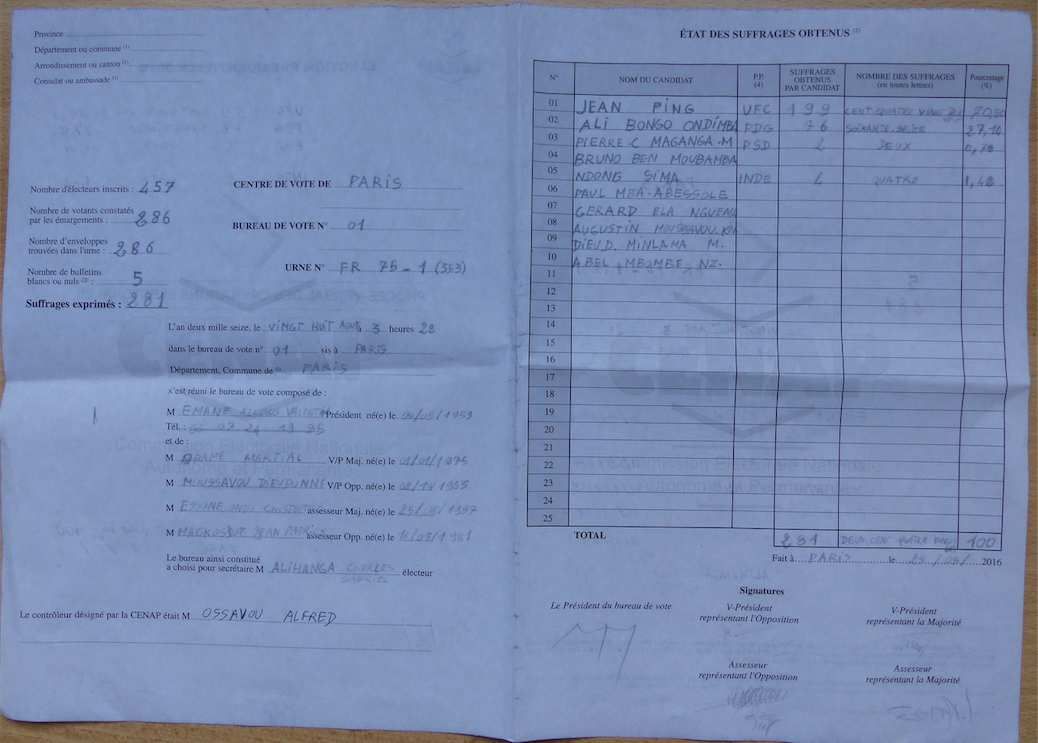 Province
Département ou commune (1)
Arrondissement ou canton (1)
Consulat ou ambassade (1)
Nombre d'électeurs inscrits : 457
Nombre de votants constatés
par les émargements : 286
Nombre d'enveloppes
trouvées dans l'urne : 286
Nombre de bulletins
blancs ou nuls (2) : 5
Suffrages exprimés : 281
CENTRE DE VOTE DE PARIS
BUREAU DE VOTE N° 01
URNE N° FR 75-1 (353)
L'an deux mille seize, le VINGT HUIT Août à 3 heures 28
dans le bureau de vote n° 01 sis à PARIS
Département, Commune de PARIS
s'est réuni le bureau de vote composé de :
M EMANE Président né(e) le 1959
Tél. :
et de :
M MARTIAL V/P Maj. né(e) le 01/01/1975
M MOUSSAVOU DIEUDONNE V/P Opp. né(e) le
M assesseur Maj. né(e) le
M JEAN assesseur Opp. né(e) le
Le bureau ainsi constitué
a choisi pour secrétaire M ALIHANGA électeur
Le contrôleur désigné par la CENAP était M OSSAVOU ALFRED
ÉTAT DES SUFFRAGES OBTENUS
N° NOM DU CANDIDAT P.P. (4) SUFFRAGES OBTENUS PAR CANDIDAT NOMBRE DES SUFFRAGES (en toutes lettres) Pourcentage (%)
01 JEAN PING UFC 199
02 ALI BONGO ONDIMBA PDG 76 SOIXANTE-SEIZE
03 PIERRE C MAGANGA-M PSD 2 DEUX
04 BRUNO BEN MOUBAMBA
05 NDONG SIMA INDE 4 QUATRE
06 PAUL MBA-ABESSOLE
07 GERARD ELA NGUEMA
08 AUGUSTIN MOUSSAVOU
09 DIEUD. MINLAMA M.
10 ABEL MBOMBE NZ.
11
12
13
14
15
16
17
18
19
20
21
22
23
24
25
TOTAL 281 100
Fait à PARIS le 2016
Signatures
Le Président du bureau de vote
V-Président
représentant l'Opposition
V-Président
représentant la Majorité
Assesseur
représentant l'Opposition
Assesseur
représentant la Majorité